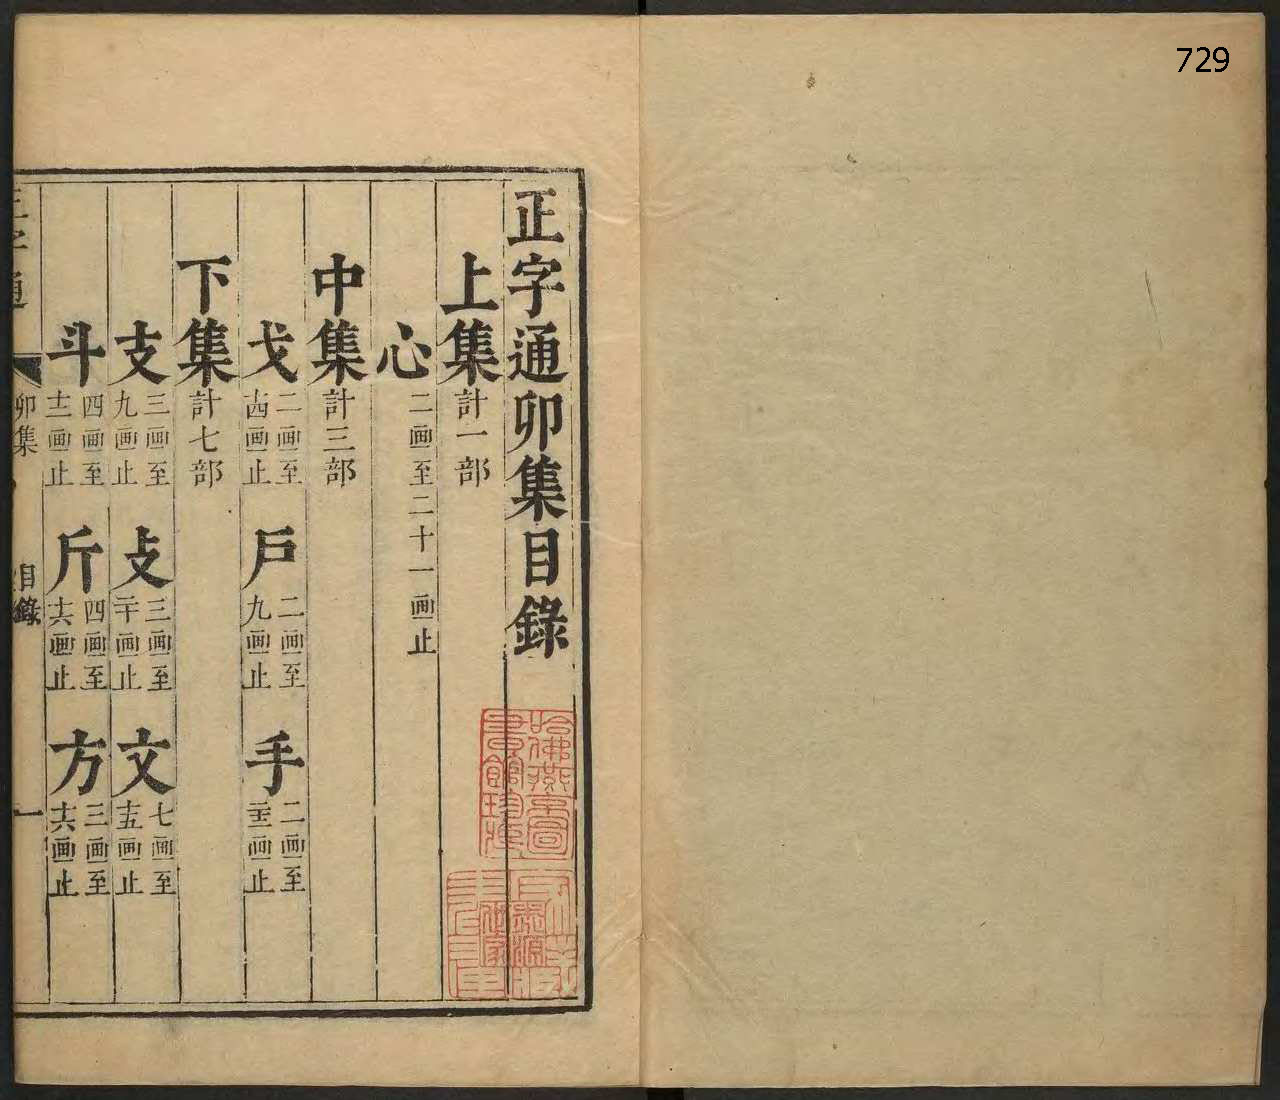 729
正字通卯集目錄
上集計一部
心二画至二十一画止
中集計三部
戈二画至十四画止 戶二画至九画止 手二画至二十一画止
下集計七部
支三画至九画止 攴三画至二十画止 文七画至十五画止
斗四画至十二画止 斤四画至十六画止 方三画至十六画止
正字通 卯集 目錄 一
哈佛燕京圖書館珍藏